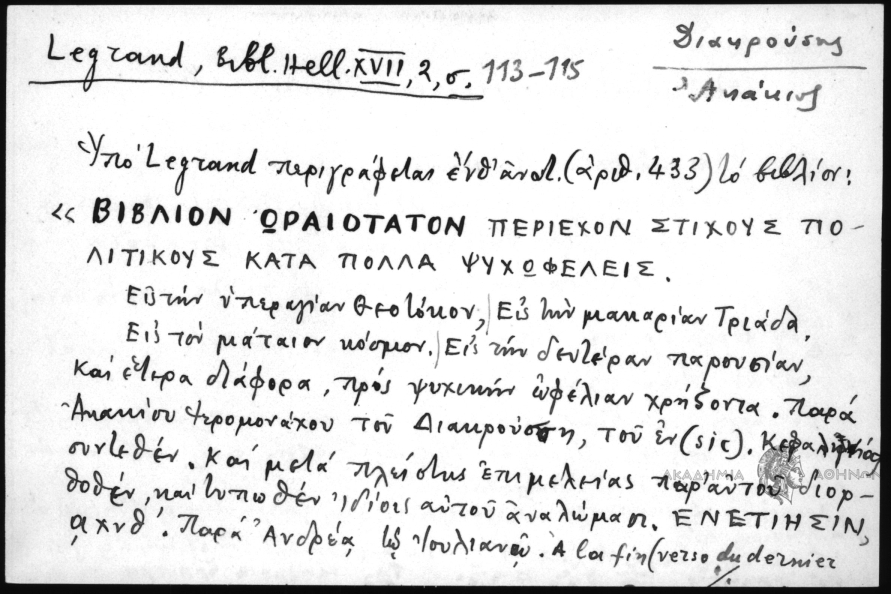 Legrand, Bibl. Hell. XVII, 2, σ. 113-115
Διακρούσης
Ἀκάκιος
Ὑπό Legrand περιγράφεται ἐνθ' ἀνωτ. (ἀριθ. 433) τό βιβλίον:
« ΒΙΒΛΙΟΝ ΩΡΑΙΟΤΑΤΟΝ ΠΕΡΙΕΧΟΝ ΣΤΙΧΟΥΣ ΠΟ-
ΛΙΤΙΚΟΥΣ ΚΑΤΑ ΠΟΛΛΑ ΨΥΧΩΦΕΛΕΙΣ.
Εἰς τήν ὑπεραγίαν Θεοτόκον, | Εἰς τήν μακαρίαν Τριάδα,
Εἰς τόν μάταιον κόσμον. | Εἰς τήν δευτέραν παρουσίαν,
καί ἕτερα διάφορα, πρός ψυχικήν ὠφέλιαν χρήζοντα. Παρά
Ἀκακίου Ἱερομονάχου τοῦ Διακρούση, τοῦ ἐν (sic). Κεφαληνίας
συντεθέν. Καί μετά πλείστης ἐπιμελείας παρ' αὐτοῦ διορ-
θοθέν, καί τυπωθέν ἰδίοις αὐτοῦ ἀναλώμασι. ΕΝΕΤΙΗΣΙΝ,
͵αχνθ΄. Παρά Ἀνδρέᾳ τῷ Ἰουλιανῷ. A la fin (verso du dernier
ΑΚΑΔΗΜΙΑ ΑΘΗΝΩΝ